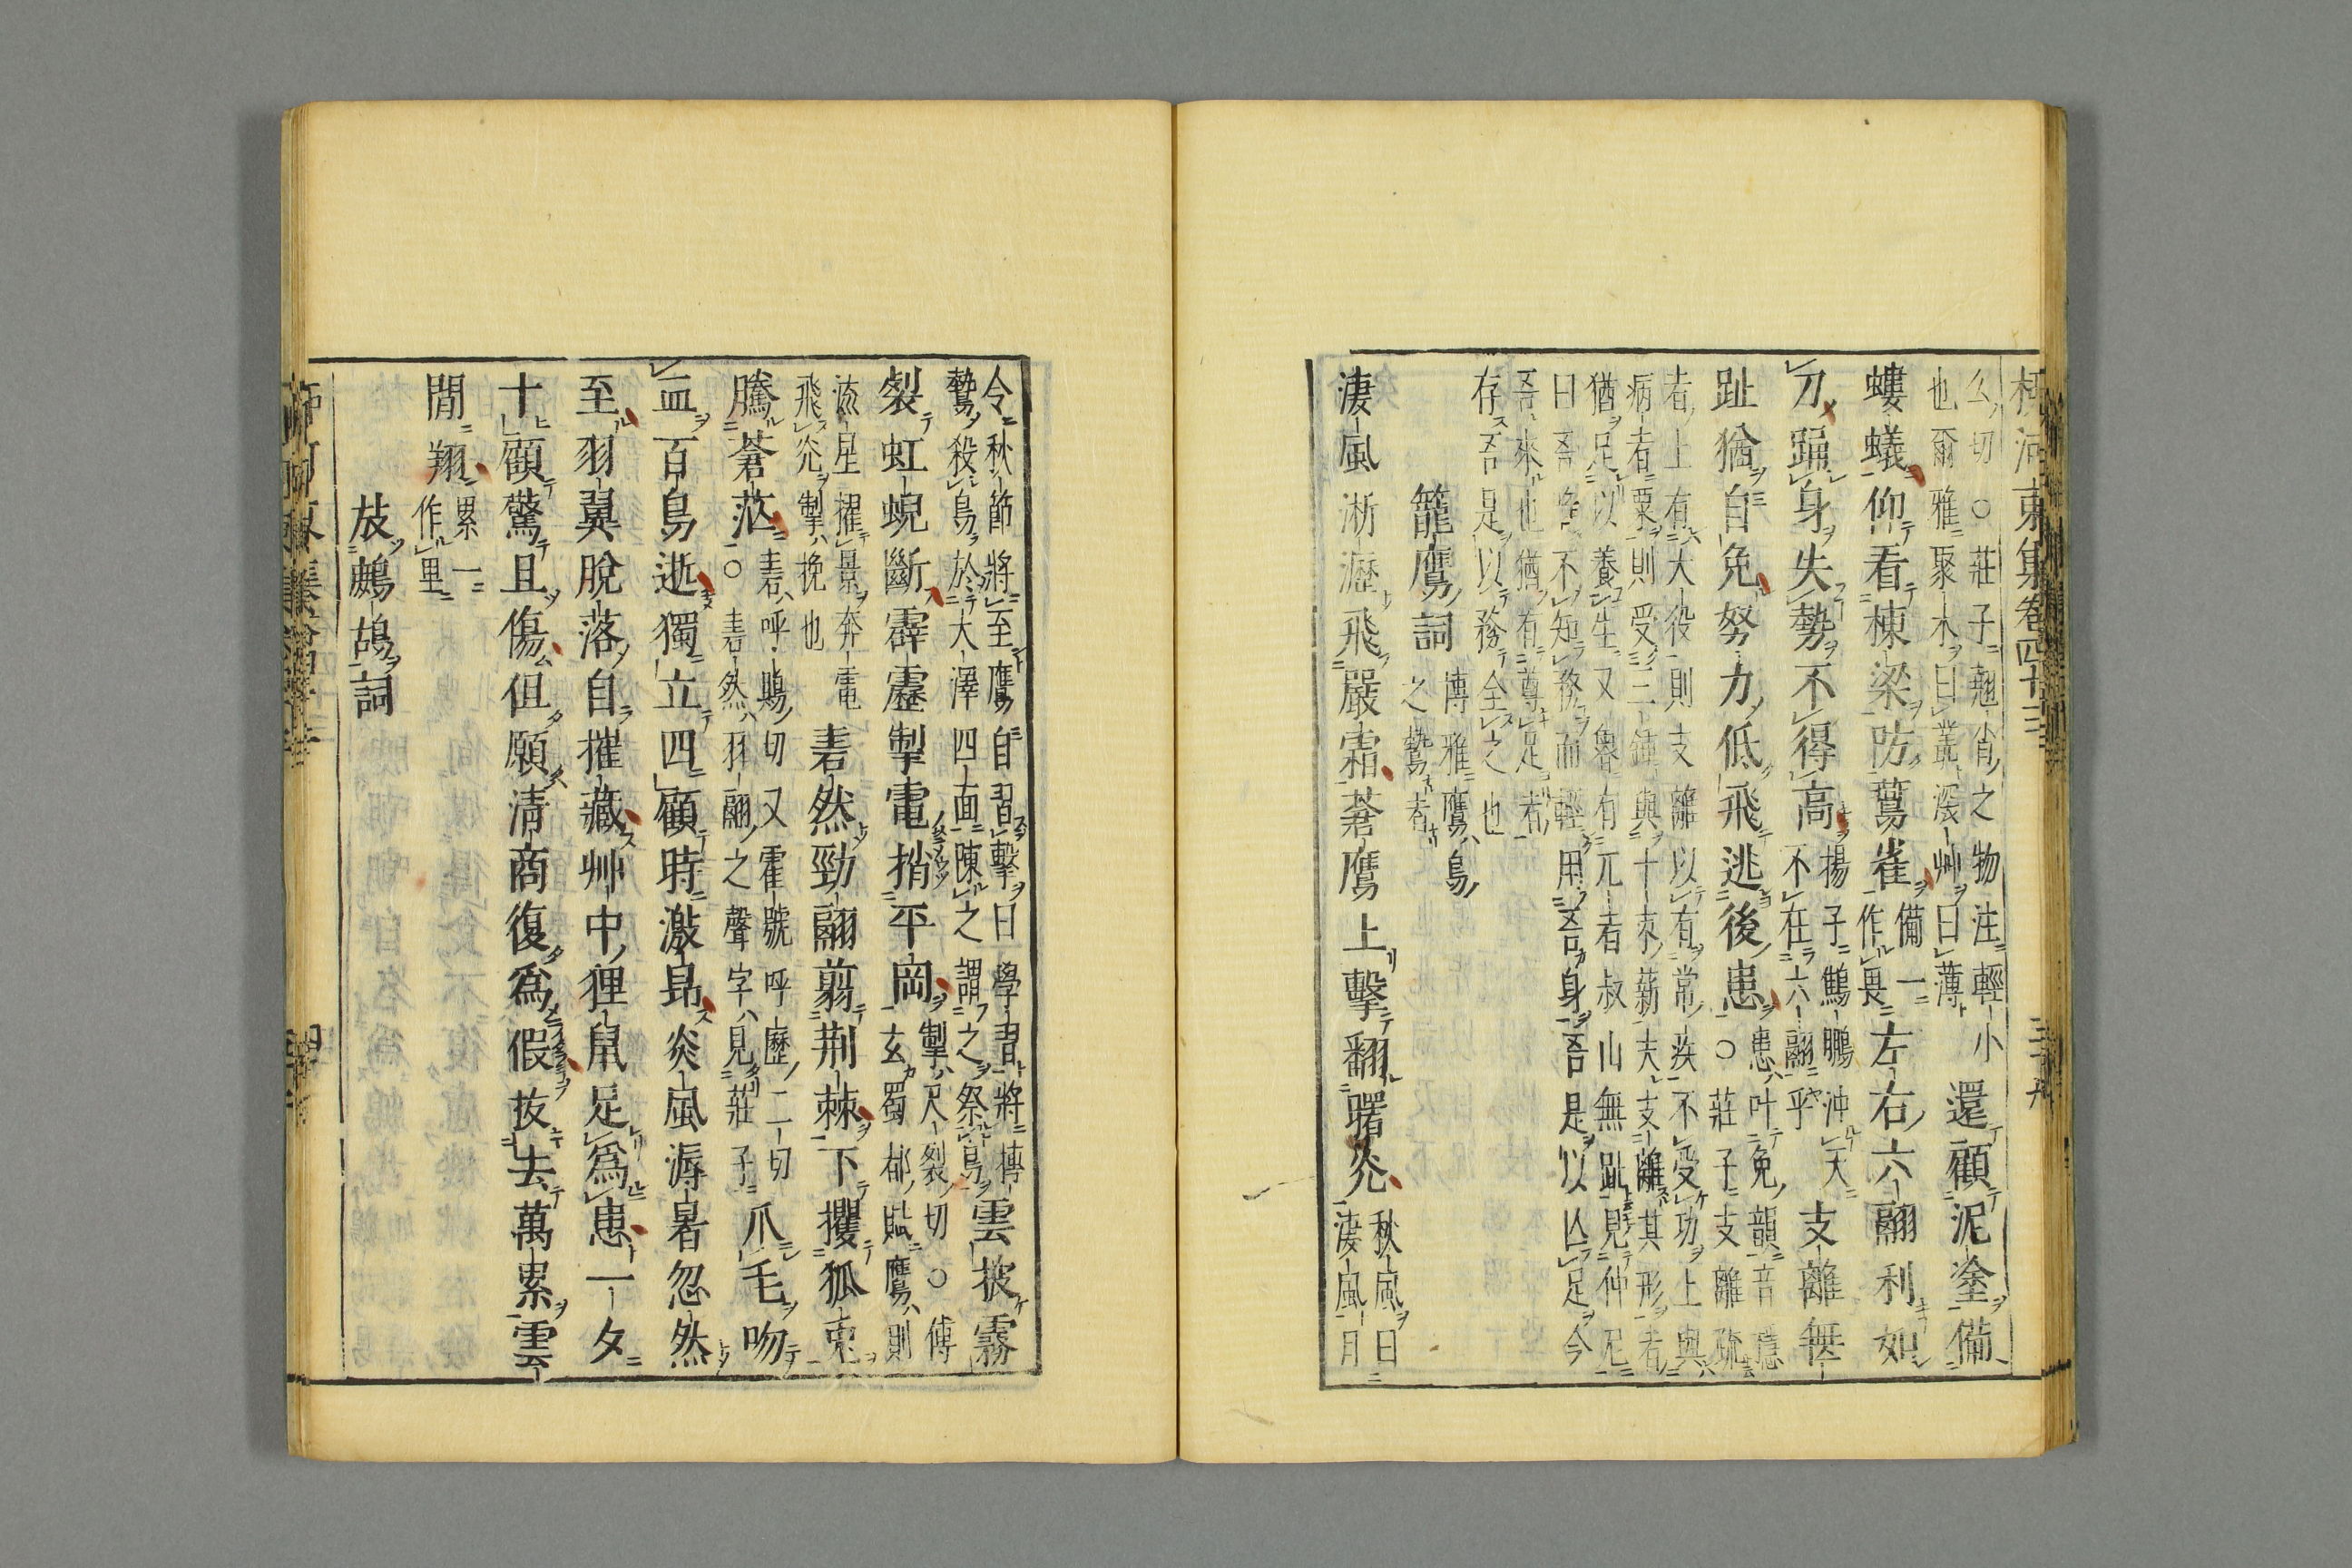 柳河東集卷四十三
幺切○莊子翹肖之物注輕小
也爾雅聚木曰叢深艸曰薄
還顧泥塗備
螻蟻仰看棟梁防鷰雀
備一
作畏
左右六翮利如
刀踊身失勢不得高
揚子鷦鵬沖天
不在六翮乎
支離無
趾猶自免努力低飛逃後患
患叶免韻音
○莊子支離疏
者上有大役則支離以有常疾不受功上與
病者粟則受三鍾與十束薪夫支離其形者
猶足以養生又魯有兀者叔山無趾見仲尼
曰吾唯不知務而輕用吾身吾是以亾足今
吾來也猶有尊足者
存吾是以務全之也
籠鷹詞
博雅鷹鳥
之鷙者
淒風淅瀝飛嚴霜蒼鷹上擊翻曙光
秋風曰
淒風月
令秋節將至鷹自習擊曰學習將搏
鷙殺鳥於大澤四面陳之謂之祭鳥
雲披霧
裂虹蜺斷霹靂掣電捎平岡
掣尺裂切○傅
玄蜀都賦鷹則
流星擢景奔電
飛光掣挽也
砉然勁翮翦荊棘下攫狐兔
騰蒼茫
砉呼鶪切又霍號呼歷二切
○砉然羽翮之聲字見莊子
爪毛吻
血百鳥逝獨立四顧時激昂炎風溽暑忽然
至羽翼脫落自摧藏艸中狸鼠足爲患一夕
十顧驚且傷但願清商復爲假拔去萬累雲
間翔
累一
作里
放鷓鴣詞